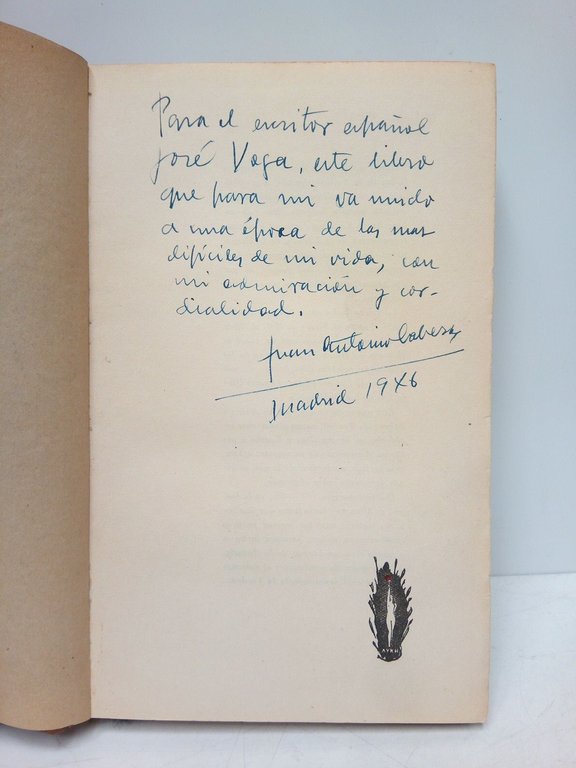 Para el escritor español
José Vega, este libro
que para mi va unido
a una época de las mas
difíciles de mi vida, con
mi admiración y cor-
dialidad.
Juan Antonio Cabezas
Madrid 1946